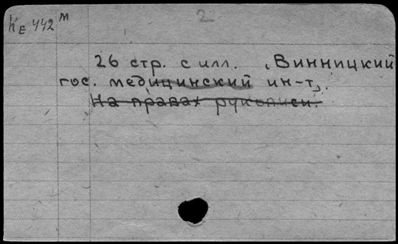 2
КЕ 442 м
26 стр. с илл. (Винницкий
гос. медицинский ин-т).
На правах рукописи.